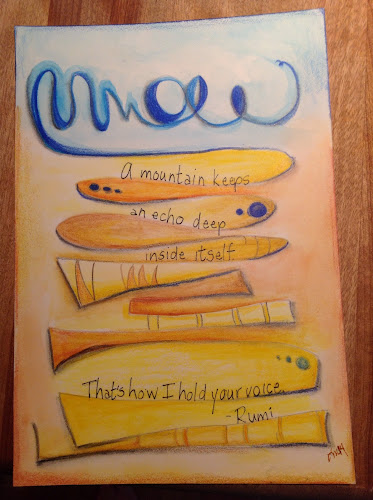 A mountain keeps
an echo deep
inside itself
That's how I hold your voice.
-Rumi